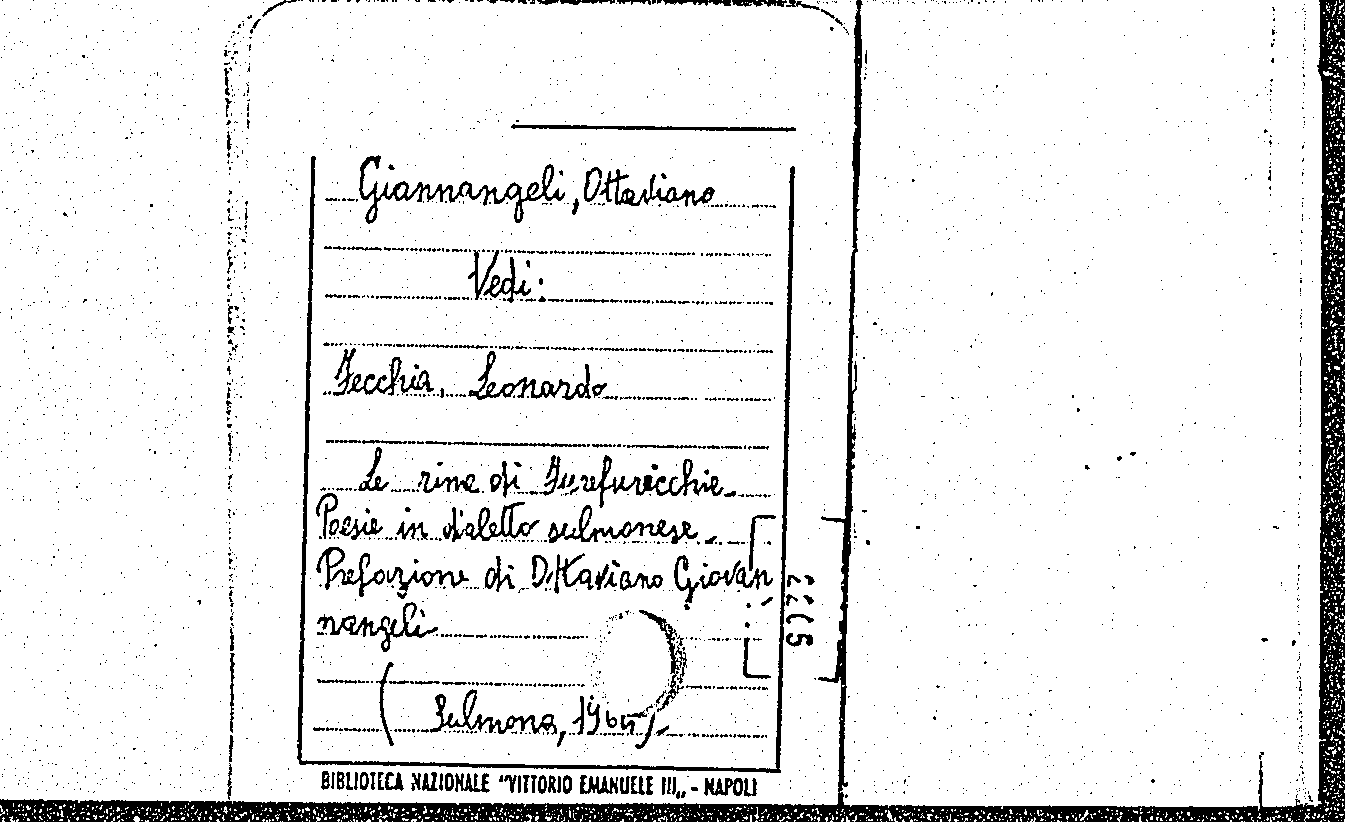 Giannangeli, Ottaviano
Vedi:
Fecchia, Leonardo
Le rime di Furefuricchie.
Poesie in dialetto sulmonese.
Prefazione di Ottaviano Giovan
nangeli
( Sulmona,
BIBLIOTECA NAZIONALE "VITTORIO EMANUELE III„ - NAPOLI